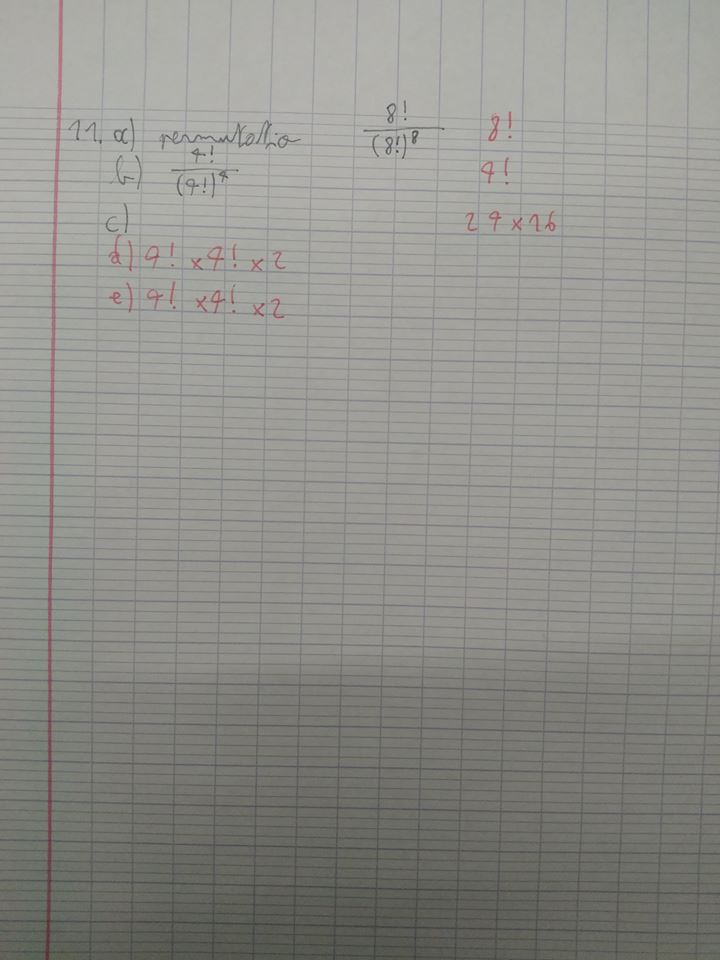 11. a) permutation 8! / (8!)^8 8!
b) 4! / (4!)^4 4!
c) 24 x 16
d) 4! x 4! x 2
e) 4! x 4! x 2